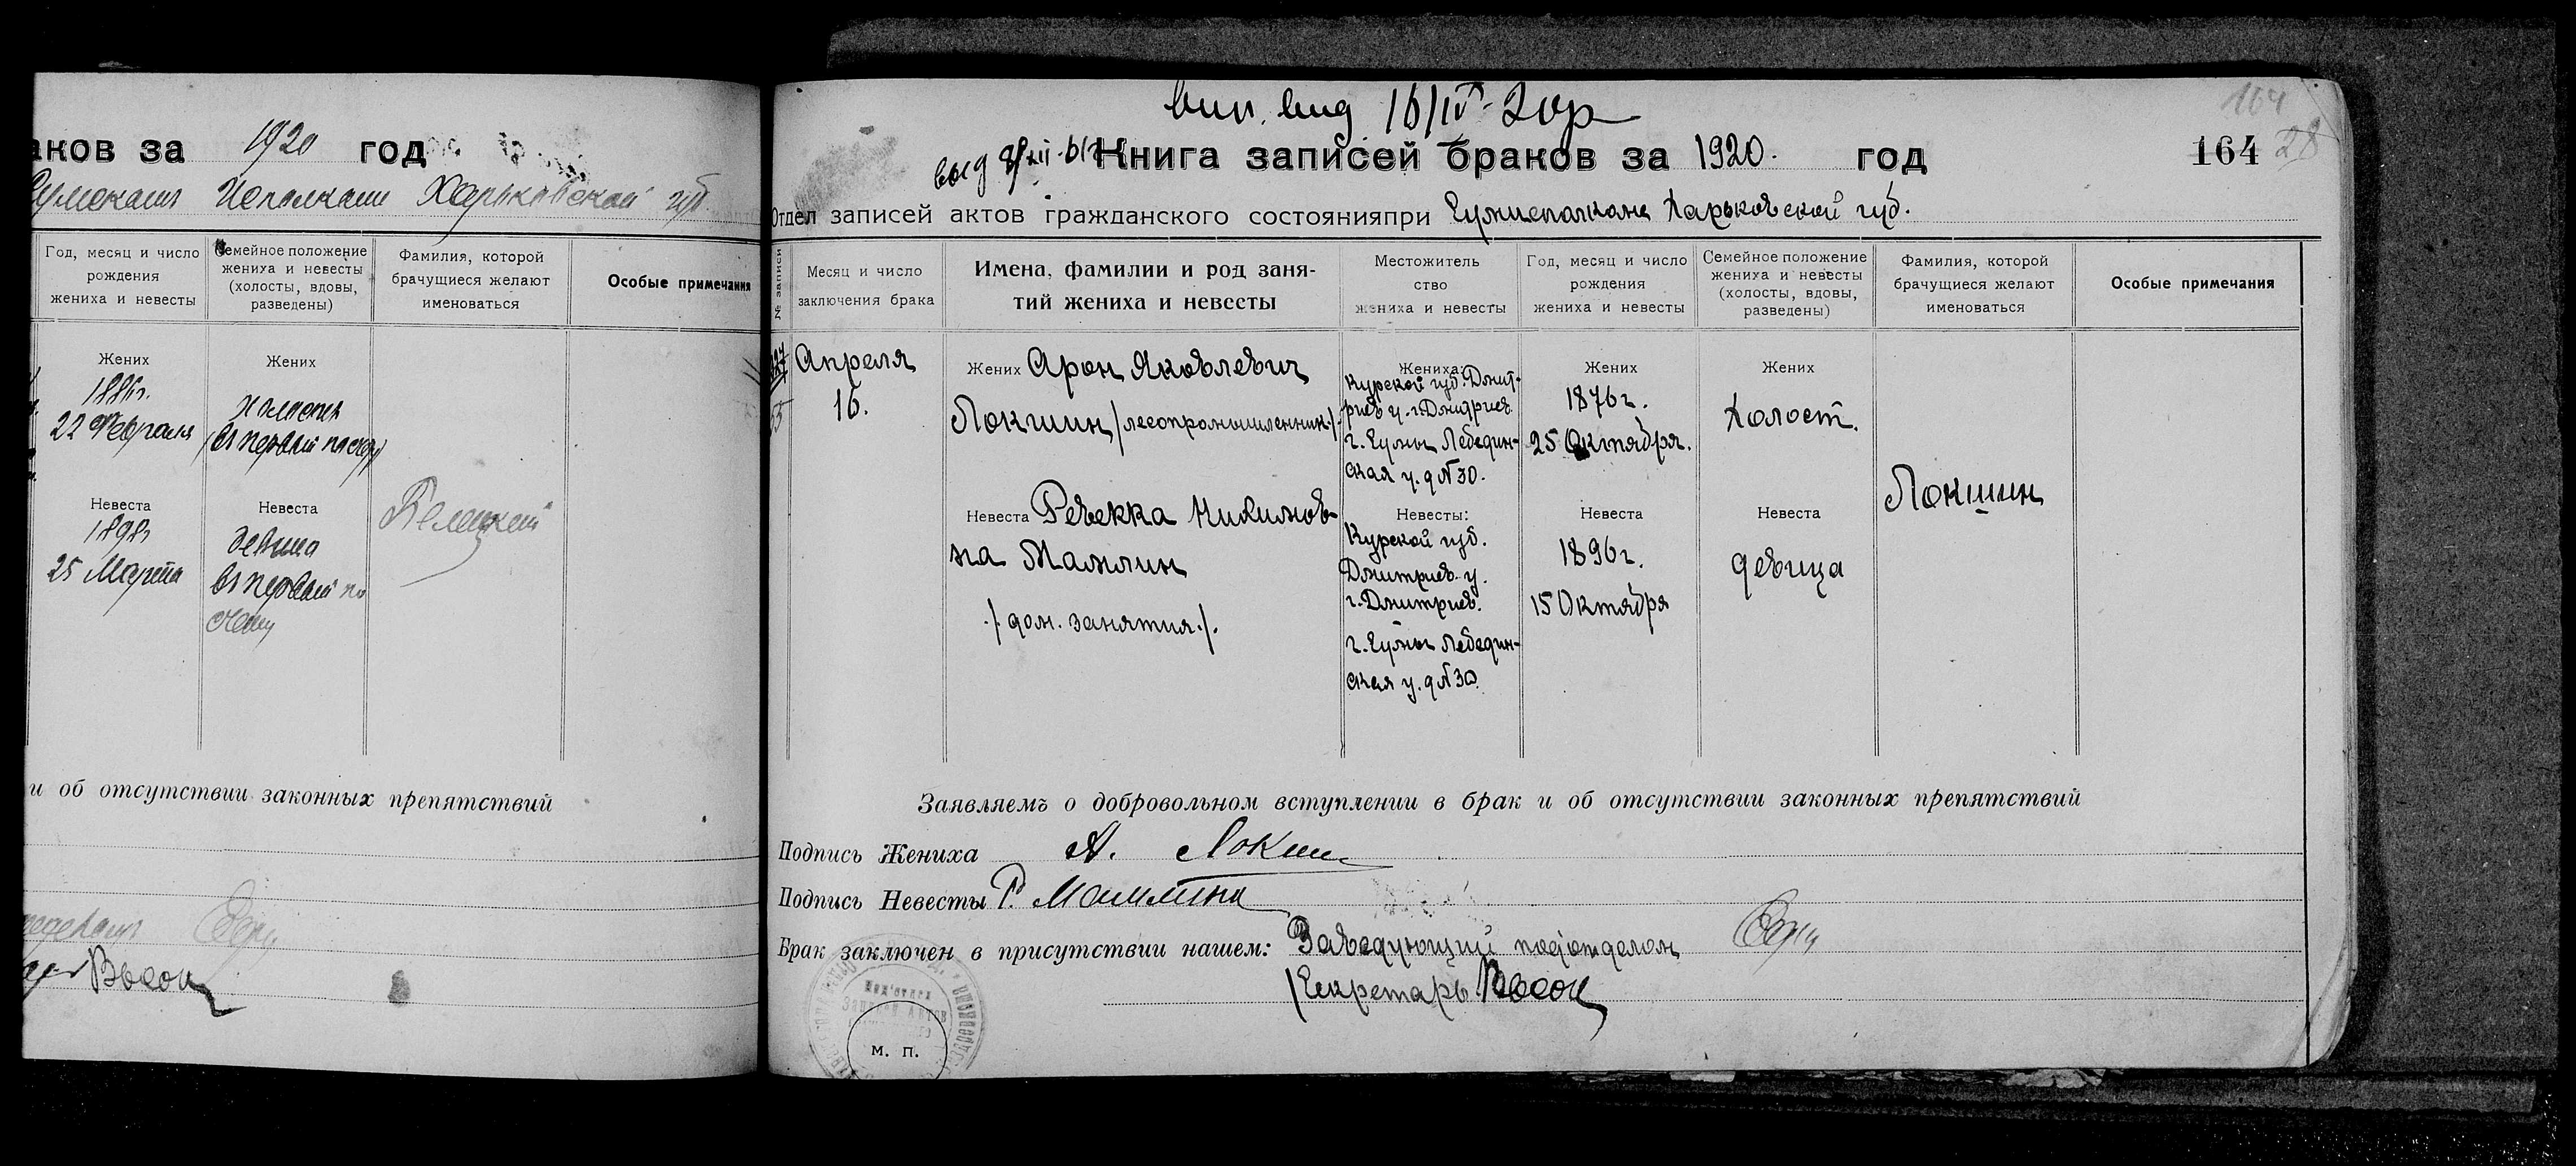 1920 год
Харьковской губ.
Год, месяц и число
рождения
жениха и невесты
Семейное положение
жениха и невесты
(холосты, вдовы,
разведены)
Фамилия, которой
брачущиеся желают
именоваться
Особые примечания
Жених
1886г.
22 Февраля
Жених
Невеста
1898г
25 Марта
Невеста
девица
и об отсутствии законных препятствий
вид 16/IV-20г
164
Книга записей браков за 1920. год
164 28
Отдел записей актов гражданского состоянияпри Сумисполкоме Харьковской губ.
№ записи
Месяц и число
заключения брака
Имена, фамилии и род заня-
тий жениха и невесты
Местожитель
ство
жениха и невесты
Год, месяц и число
рождения
жениха и невесты
Семейное положение
жениха и невесты
(холосты, вдовы,
разведены)
Фамилия, которой
брачущиеся желают
именоваться
Особые примечания
Апреля
16.
Жених Арон Яковлевич
Локшин /лесопромышленник./.
Невеста Ревекка
на Маммин
./дом. занятия./.
Жениха:
Курской губ. Дмит-
риев у. г. Дмитриев.
г. Сумы Лебедин-
ская у. д №30.
Невесты:
Курской губ.
Дмитриев. у.
г. Дмитриев.
г. Сумы Лебедин-
ская у. д №30.
Жених
1876г.
25 Октября.
Невеста
1896г.
15 Октября
Жених
Холост.
Невеста
девица
Локшин
Заявляемъ о добровольном вступлении в брак и об отсутствии законных препятствий
Подпись Жениха А. Локшин
Подпись Невесты Р.
Брак заключен в присутствии нашем: Заведующий подотделом
Секретарь
м. п.